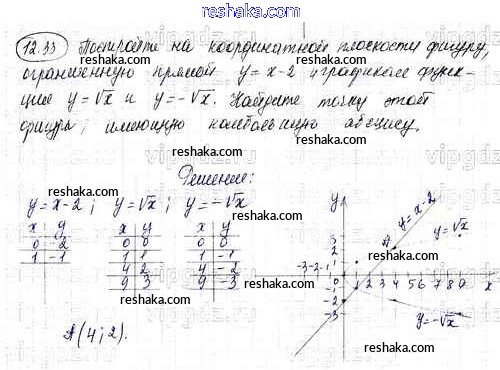 reshaka.com
12.33 Постройте на координатной плоскости фигуру,
ограниченную прямой y = x-2 и графиками функ-
ций y = √x и y = -√x. Найдите точку этой
фигуры, имеющую наибольшую абсциссу.
Решение:
reshaka.com
y = x-2; y = √x; y = -√x
x y
0 -2
1 -1
x y
0 0
1 1
4 2
9 3
x y
0 0
1 -1
4 -2
9 -3
A(4; 2).
reshaka.com
y
y = x-2
y = √x
A
3
2
1
-3 -2 -1 0 1 2 3 4 5 6 7 8 9 x
-1
-2
-3
y = -√x
reshaka.com
vipgdz.ru